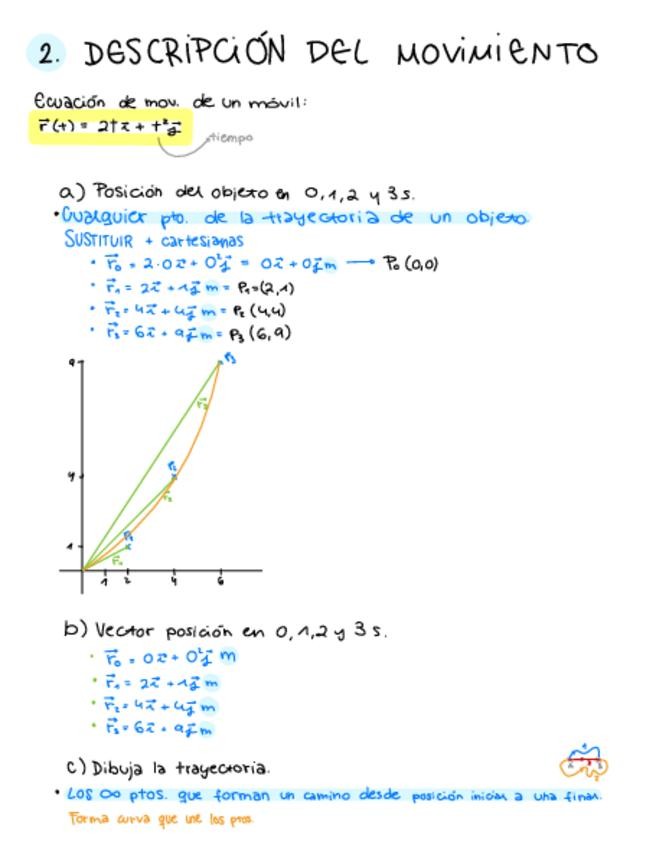 2. DESCRIPCIÓN DEL MOVIMIENTO
Ecuación de mov. de un móvil:
r⃗(t) = 2t i⃗ + t² j⃗
tiempo
a) Posición del objeto en 0, 1, 2 y 3 s.
• Cualquier pto. de la trayectoria de un objeto.
SUSTITUIR + cartesianas
• r⃗₀ = 2·0 i⃗ + 0² j⃗ = 0 i⃗ + 0 j⃗ m → P₀ (0,0)
• r⃗₁ = 2 i⃗ + 1 j⃗ m = P₁=(2,1)
• r⃗₂ = 4 i⃗ + 4 j⃗ m = P₂ (4,4)
• r⃗₃ = 6 i⃗ + 9 j⃗ m = P₃ (6,9)
9
P₃
r⃗₃
4
P₂
r⃗₂
1
P₁
r⃗₁
1 2 4 6
b) Vector posición en 0, 1, 2 y 3 s.
• r⃗₀ = 0 i⃗ + 0² j⃗ m
• r⃗₁ = 2 i⃗ + 1 j⃗ m
• r⃗₂ = 4 i⃗ + 4 j⃗ m
• r⃗₃ = 6 i⃗ + 9 j⃗ m
c) Dibuja la trayectoria.
• Los ∞ ptos. que forman un camino desde posición inicial a una final.
Forma curva que une los ptos.